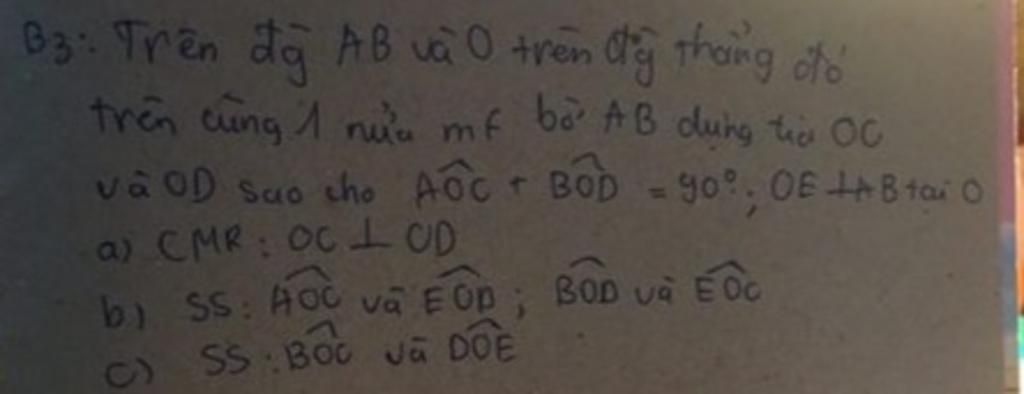 B3: Trên đg̃ AB và O trên đg̃ thẳng đó
trên cùng 1 nửa mf bờ AB dựng tia OC
và OD sao cho AÔC + BÔD = 90°; OE ⊥ AB tại O
a) CMR: OC ⊥ OD
b) SS: AÔC và EÔD; BÔD và EÔC
c) SS: BÔC và DÔE